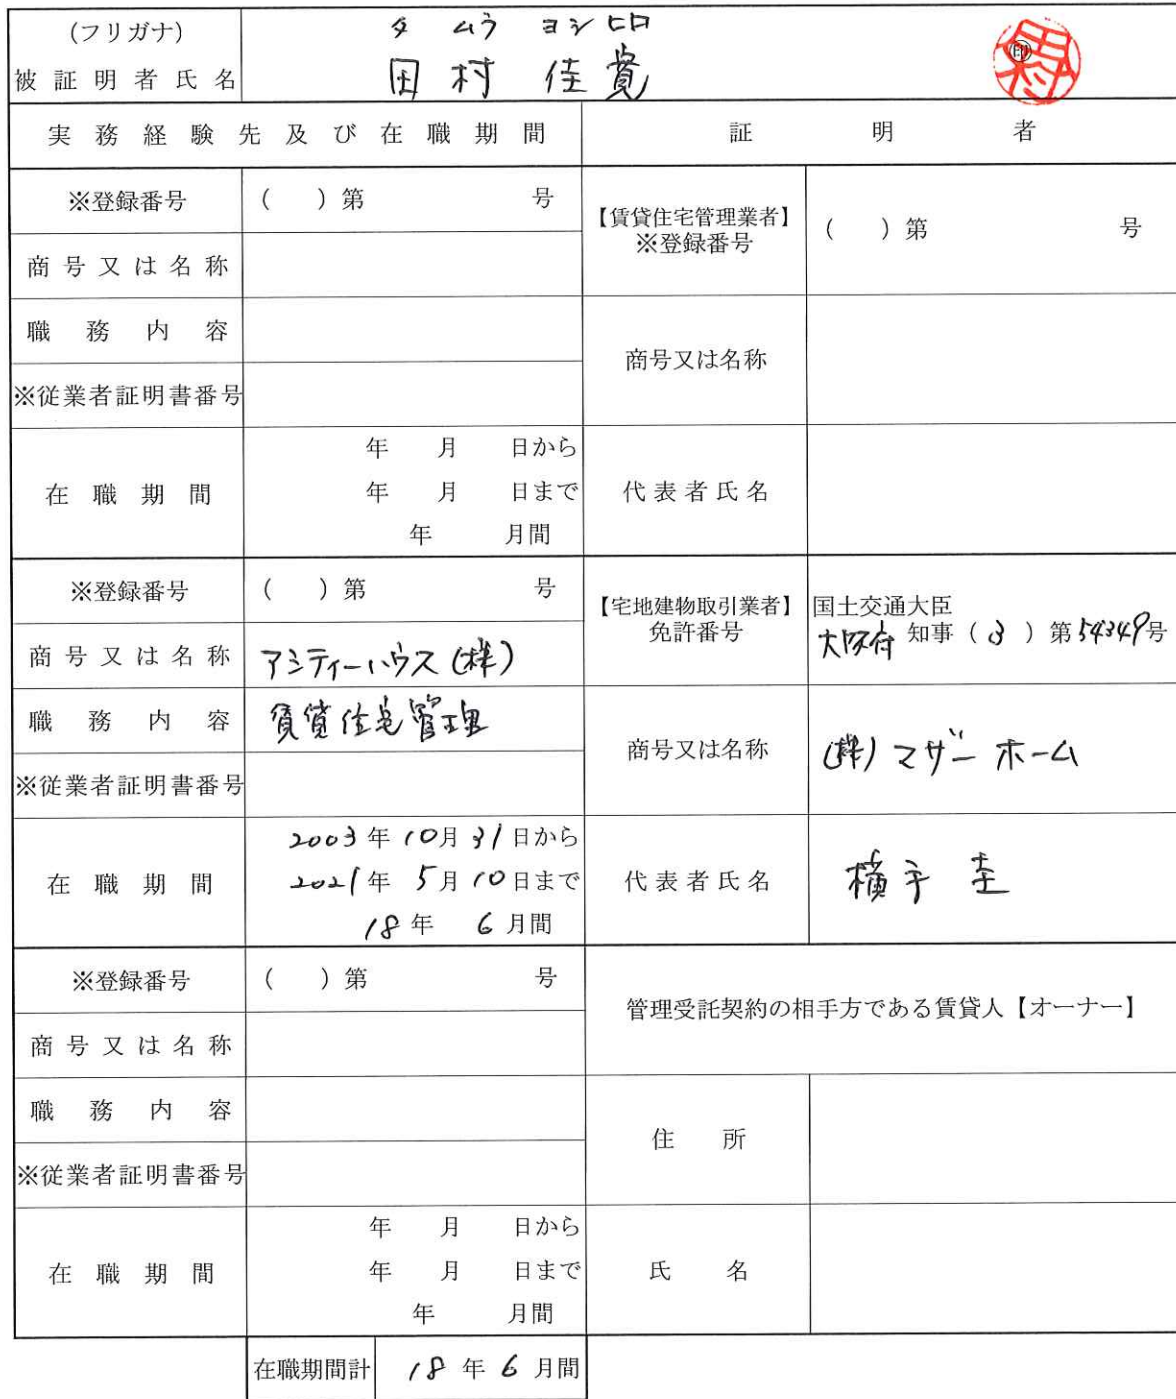 (フリガナ) タ ムラ ヨシヒロ
被証明者氏名 田村 佳寛 ㊞
実務経験先及び在職期間 証明者
※登録番号 ( )第 号
商号又は名称
職務内容
※従業者証明書番号
在職期間
年 月 日から
年 月 日まで
年 月間
【賃貸住宅管理業者】
※登録番号 ( )第 号
商号又は名称
代表者氏名
※登録番号 ( )第 号
商号又は名称 アシティーハウス(株)
職務内容 賃貸住宅管理
※従業者証明書番号
在職期間
2003年10月31日から
2021年5月10日まで
18年 6月間
【宅地建物取引業者】
免許番号
国土交通大臣
大阪府 知事(3)第54349号
商号又は名称 (株)マザーホーム
代表者氏名 横手 圭
※登録番号 ( )第 号
商号又は名称
職務内容
※従業者証明書番号
在職期間
年 月 日から
年 月 日まで
年 月間
管理受託契約の相手方である賃貸人【オーナー】
住所
氏名
在職期間計 18年6月間